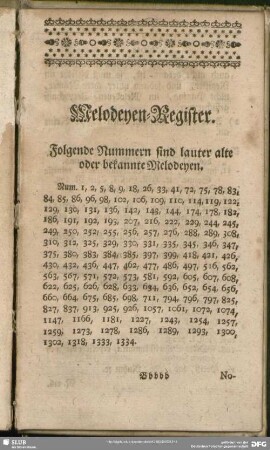 Melodeyen-Register.
Folgende Nummern sind lauter alte
oder bekannte Melodeyen.
Num. 1, 2, 5, 8, 9, 18, 26, 33, 41, 72, 75, 78, 83,
84, 85, 86, 96, 98, 102, 106, 109, 110, 114, 119, 122,
129, 130, 131, 136, 142, 148, 144, 174, 178, 182,
186, 191, 192, 193, 207, 216, 222, 229, 244, 245,
249, 250, 252, 255, 256, 257, 276, 288, 289, 308,
310, 312, 325, 329, 330, 331, 335, 345, 346, 347,
375, 380, 383, 384, 385, 397, 399, 418, 421, 426,
430, 432, 436, 447, 462, 477, 486, 497, 516, 562,
563, 567, 571, 572, 573, 581, 592, 605, 607, 608,
622, 625, 626, 628, 633, 634, 636, 652, 654, 656,
660, 664, 675, 685, 698, 711, 794, 796, 797, 825,
827, 837, 913, 925, 926, 1057, 1061, 1072, 1074,
1147, 1166, 1181, 1227, 1243, 1254, 1257,
1259, 1273, 1278, 1286, 1289, 1293, 1300,
1302, 1318, 1333, 1334.
Bbbbb No-
SLUB
DFG